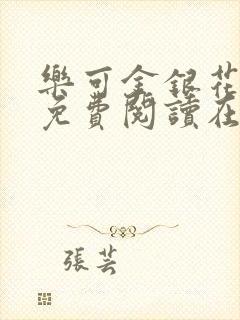 樂可金銀花
免費閱讀在
張芸